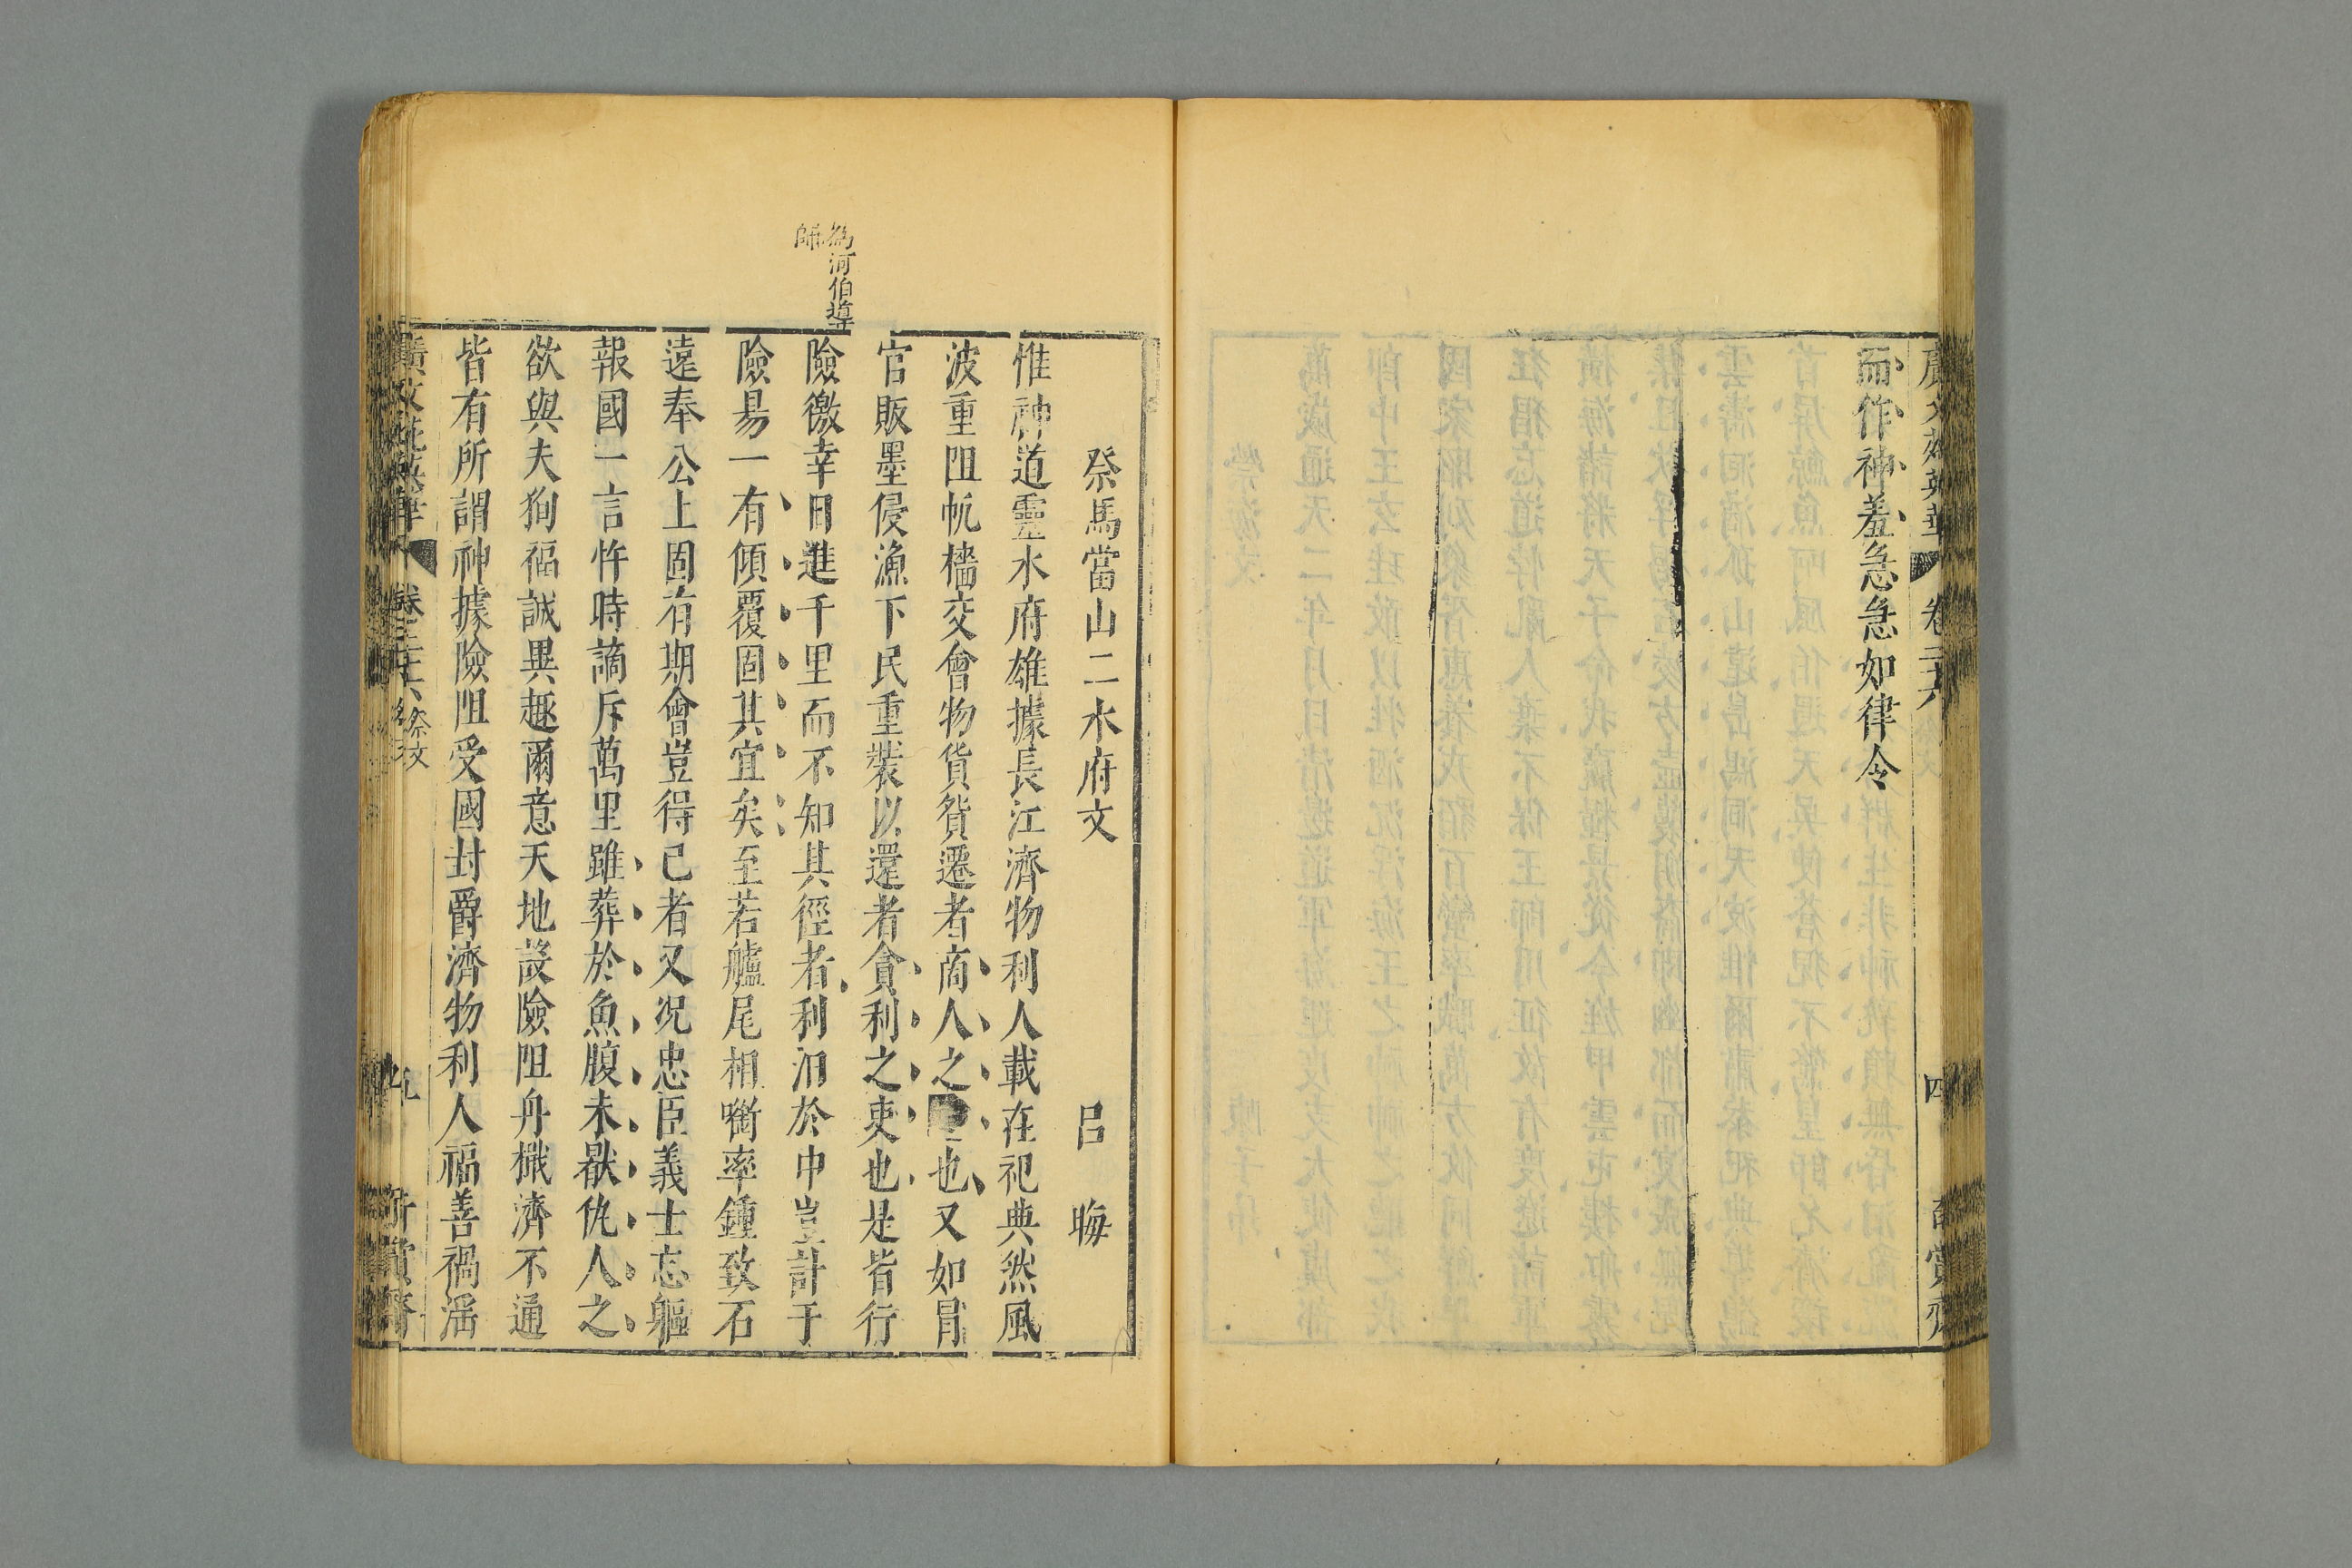 廣文苑英華 卷二十六 四 奇賞齋
而作神羞急急如律令
祭馬當山二水府文
呂 晦
惟神道靈水府雄據長江濟物利人載在祀典然風
波重阻帆檣交會物貨貿遷者商人之 也又如冒
官販墨侵漁下民重裝以還者貪利之吏也是皆行
險徼幸日進千里而不知其徑者利汨於中豈計于
險易一有傾覆固其宜矣至若艫尾相銜率鍾致石
遠奉公上固有期會豈得已者又况忠臣義士忘軀
報國一言忤時謫斥萬里雖葬於魚腹未厭仇人之
欲與夫狥福誠異趣爾意天地設險阻舟檝濟不通
皆有所謂神據險阻受國封爵濟物利人福善禍滛
為河伯導
師
廣文苑英華 卷二十六 祭文 五 奇賞齋